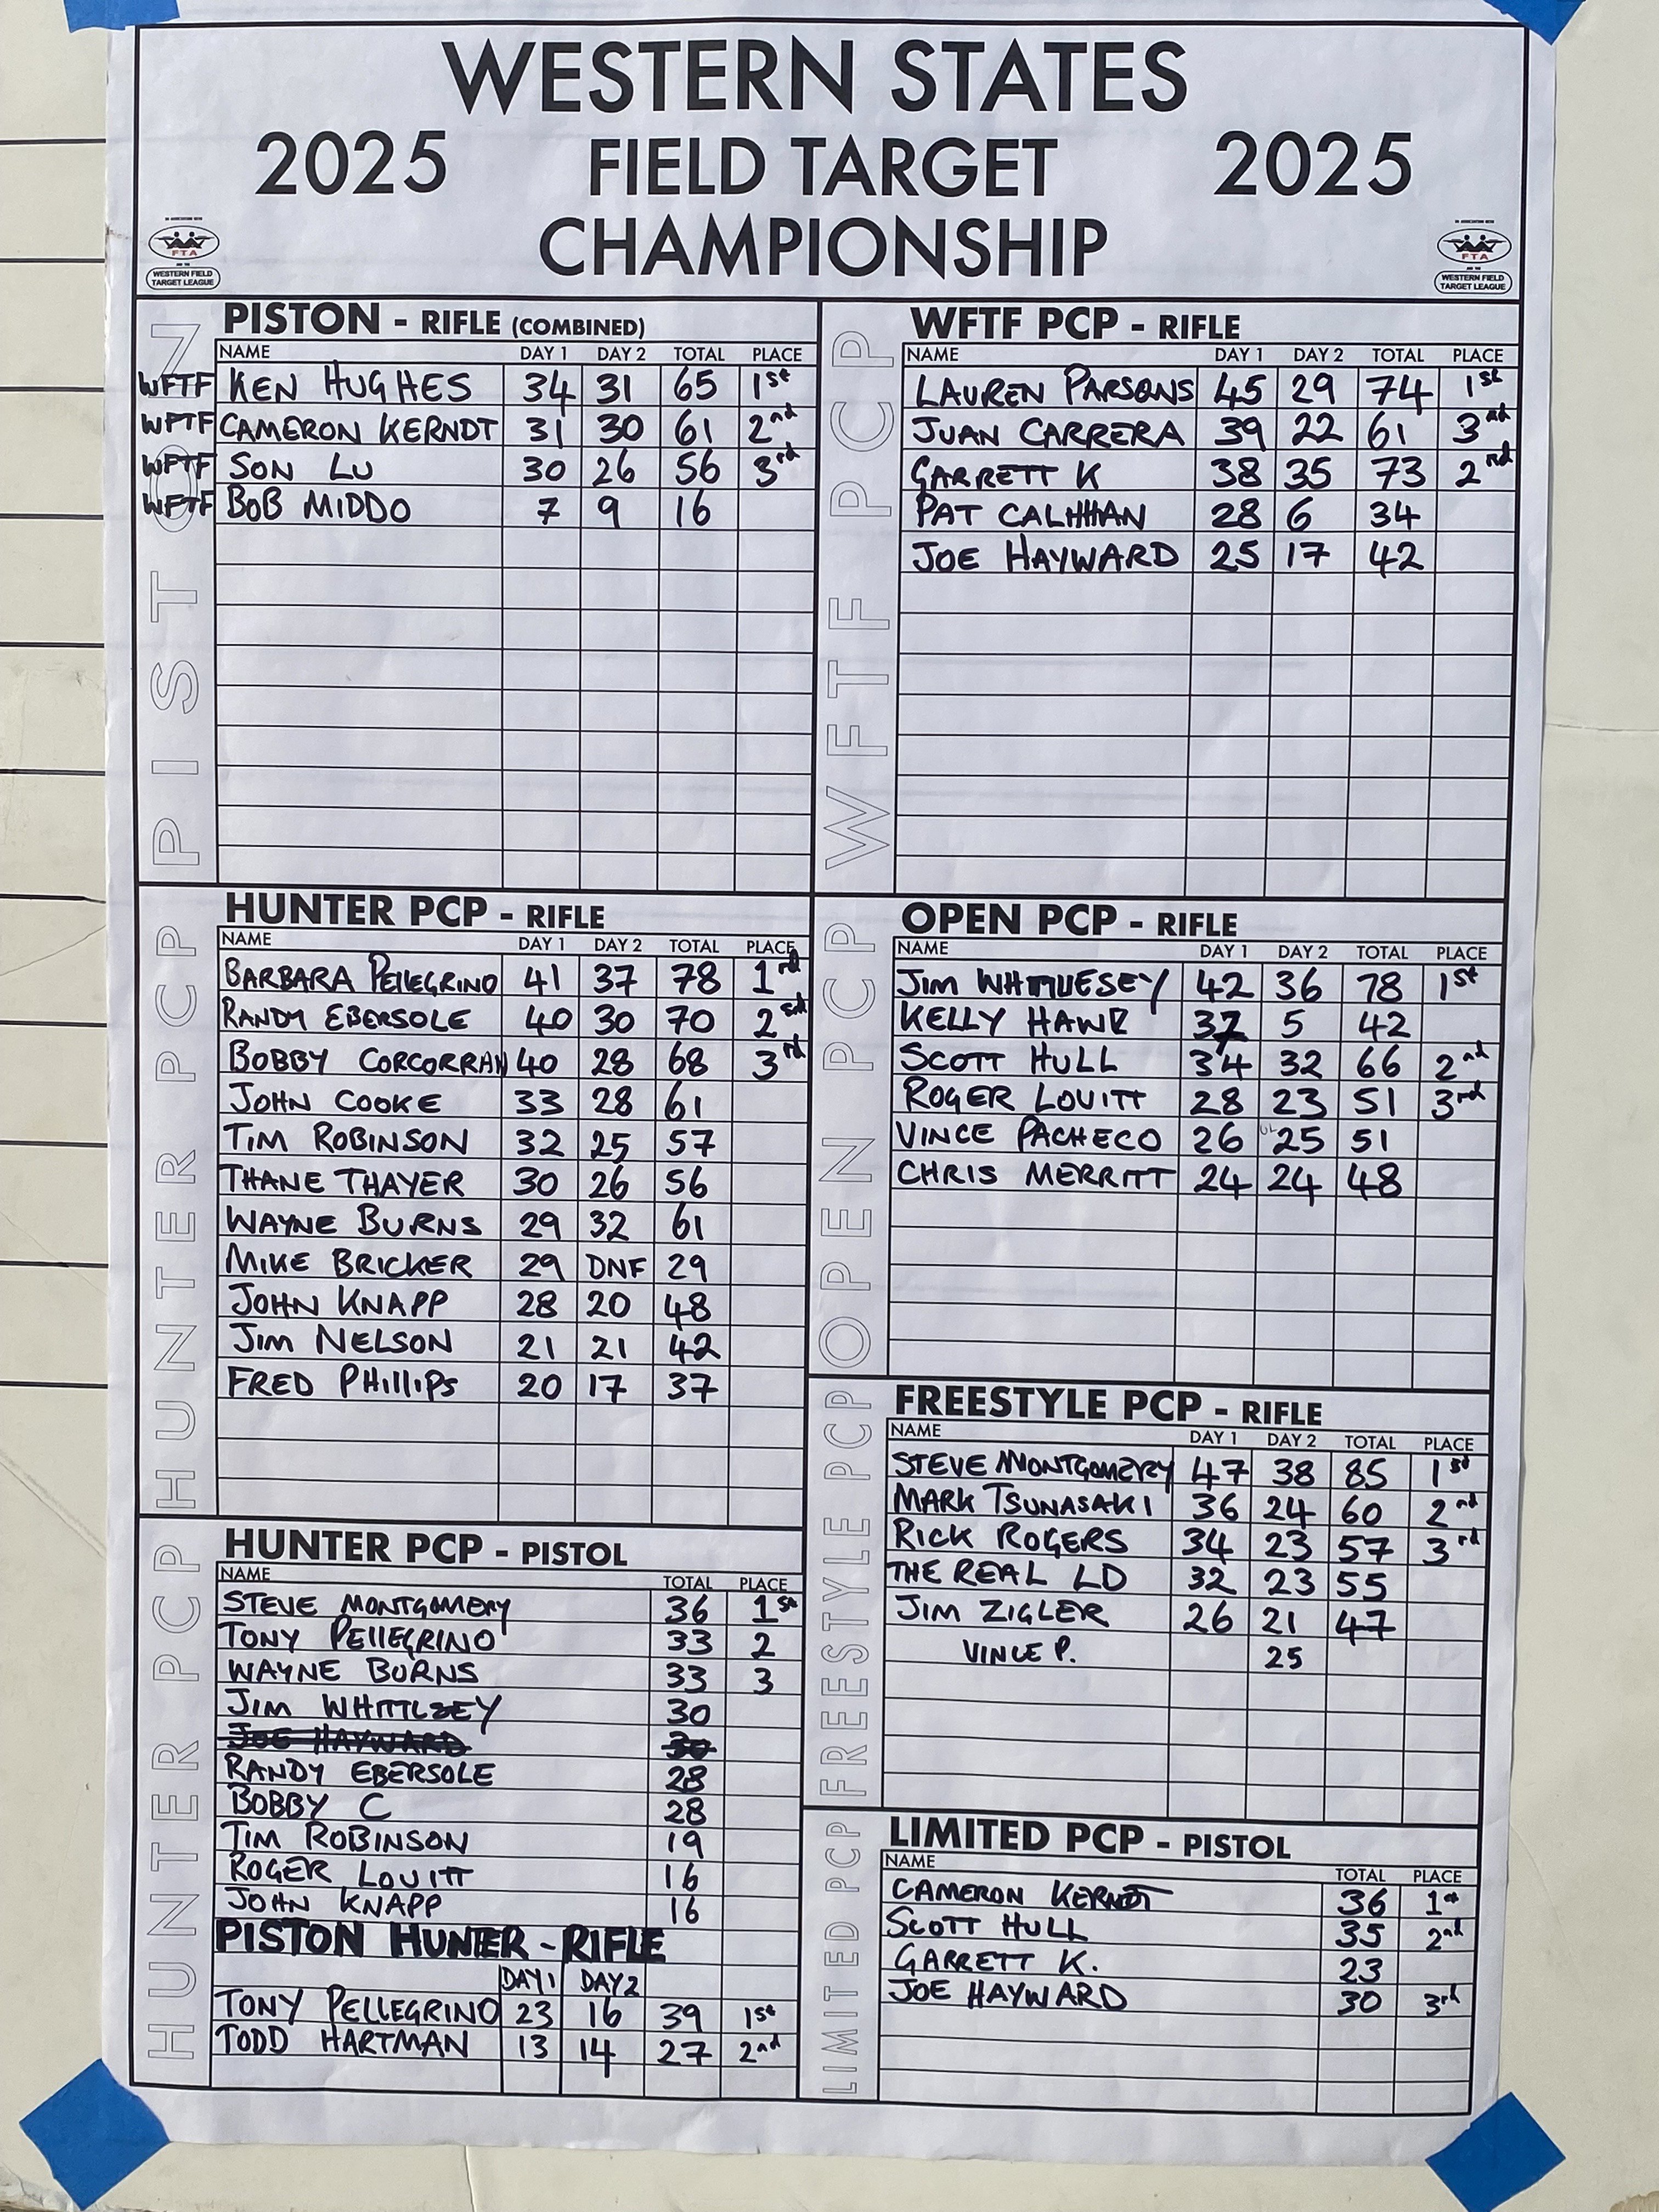 WESTERN STATES
2025 FIELD TARGET 2025
CHAMPIONSHIP
FTA
WESTERN FIELD
TARGET LEAGUE
FTA
WESTERN FIELD
TARGET LEAGUE
PISTON
PISTON - RIFLE (COMBINED)
NAME DAY 1 DAY 2 TOTAL PLACE
WFTF KEN HUGHES 34 31 65 1st
WFTF CAMERON KERNDT 31 30 61 2nd
WFTF SON LU 30 26 56 3rd
WFTF BOB MIDDO 7 9 16
WFTF PCP
WFTF PCP - RIFLE
NAME DAY 1 DAY 2 TOTAL PLACE
LAUREN PARSONS 45 29 74 1st
JUAN CARRERA 39 22 61 3rd
GARRETT K 38 35 73 2nd
PAT 28 6 34
JOE HAYWARD 25 17 42
HUNTER PCP
HUNTER PCP - RIFLE
NAME DAY 1 DAY 2 TOTAL PLACE
BARBARA PELLEGRINO 41 37 78 1rd
RANDY EBERSOLE 40 30 70 2
BOBBY CORCORRAN 40 28 68 3rd
JOHN COOKE 33 28 61
TIM ROBINSON 32 25 57
THANE THAYER 30 26 56
WAYNE BURNS 29 32 61
MIKE BRICKER 29 DNF 29
JOHN KNAPP 28 20 48
JIM NELSON 21 21 42
FRED PHILLIPS 20 17 37
OPEN PCP
OPEN PCP - RIFLE
NAME DAY 1 DAY 2 TOTAL PLACE
JIM 42 36 78 1st
KELLY 37 5 42
SCOTT HULL 34 32 66 2nd
ROGER LOUITT 28 23 51 3rd
VINCE PACHECO 26 25 51
CHRIS MERRITT 24 24 48
FREESTYLE PCP
FREESTYLE PCP - RIFLE
NAME DAY 1 DAY 2 TOTAL PLACE
STEVE MONTGOMERY 47 38 85 1st
MARK TSUNASAKI 36 24 60 2nd
RICK ROGERS 34 23 57 3rd
THE REAL LD 32 23 55
JIM ZIGLER 26 21 47
VINCE P. 25
HUNTER PCP
HUNTER PCP - PISTOL
NAME TOTAL PLACE
STEVE MONTGOMERY 36 1st
TONY PELLEGRINO 33 2
WAYNE BURNS 33 3
JIM WHITTLSEY 30
JOE HAYWARD 30
RANDY EBERSOLE 28
BOBBY C 28
TIM ROBINSON 19
ROGER LOUITT 16
JOHN KNAPP 16
PISTON HUNTER - RIFLE
DAY 1 DAY 2
TONY PELLEGRINO 23 16 39 1st
TODD HARTMAN 13 14 27 2nd
LIMITED PCP
LIMITED PCP - PISTOL
NAME TOTAL PLACE
CAMERON KERNDT 36 1st
SCOTT HULL 35 2nd
GARRETT K. 23
JOE HAYWARD 30 3rd